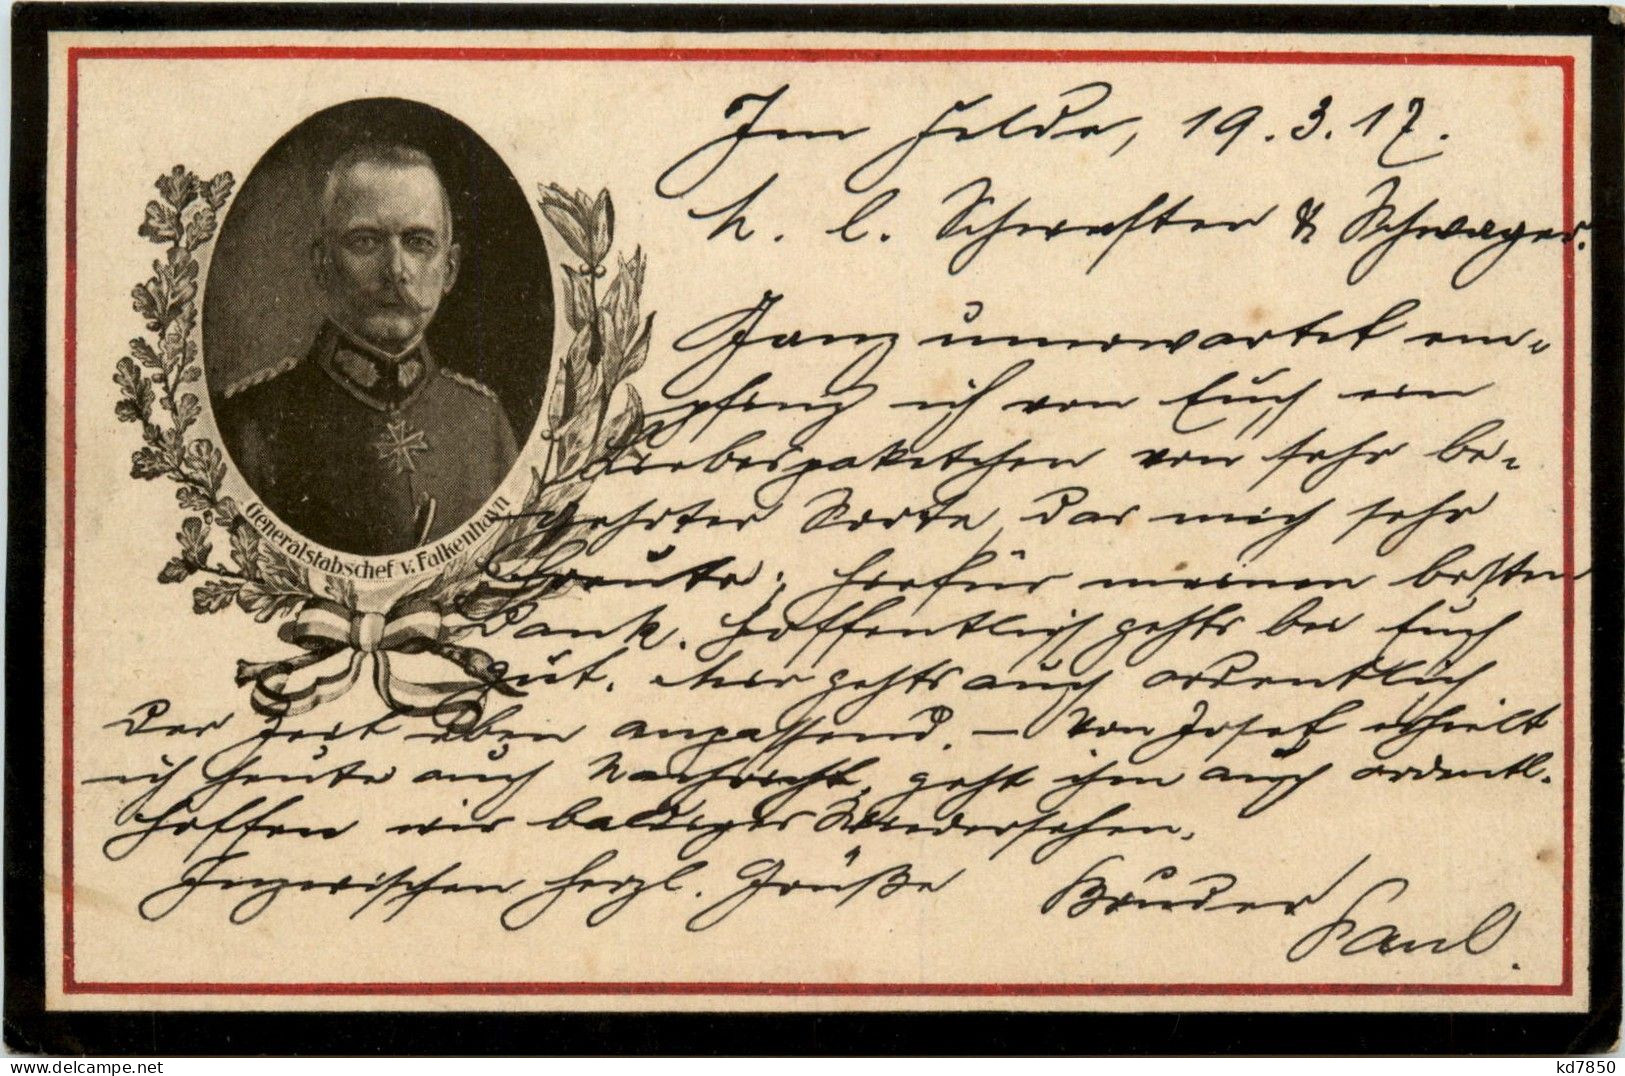 Im Felde, 19.3.17.
M. l. Schwester & Schwager.
Ganz unerwartet em-
pfing ich von Euch ein
Liebespaketchen von sehr be-
gehrter Sorte, das mich sehr
freute; hierfür meinen besten
Dank. Hoffentlich gehts bei Euch
gut. Mir gehts auch ordentlich
der Zeit eben anpassend. – Von Josef erhielt
ich heute auch Nachricht, geht ihm auch ordentl.
Hoffen wir baldiges Wiedersehen.
Inzwischen herzl. Grüße Bruder
Paul.
Generalstabschef v. Falkenhayn
kd7850